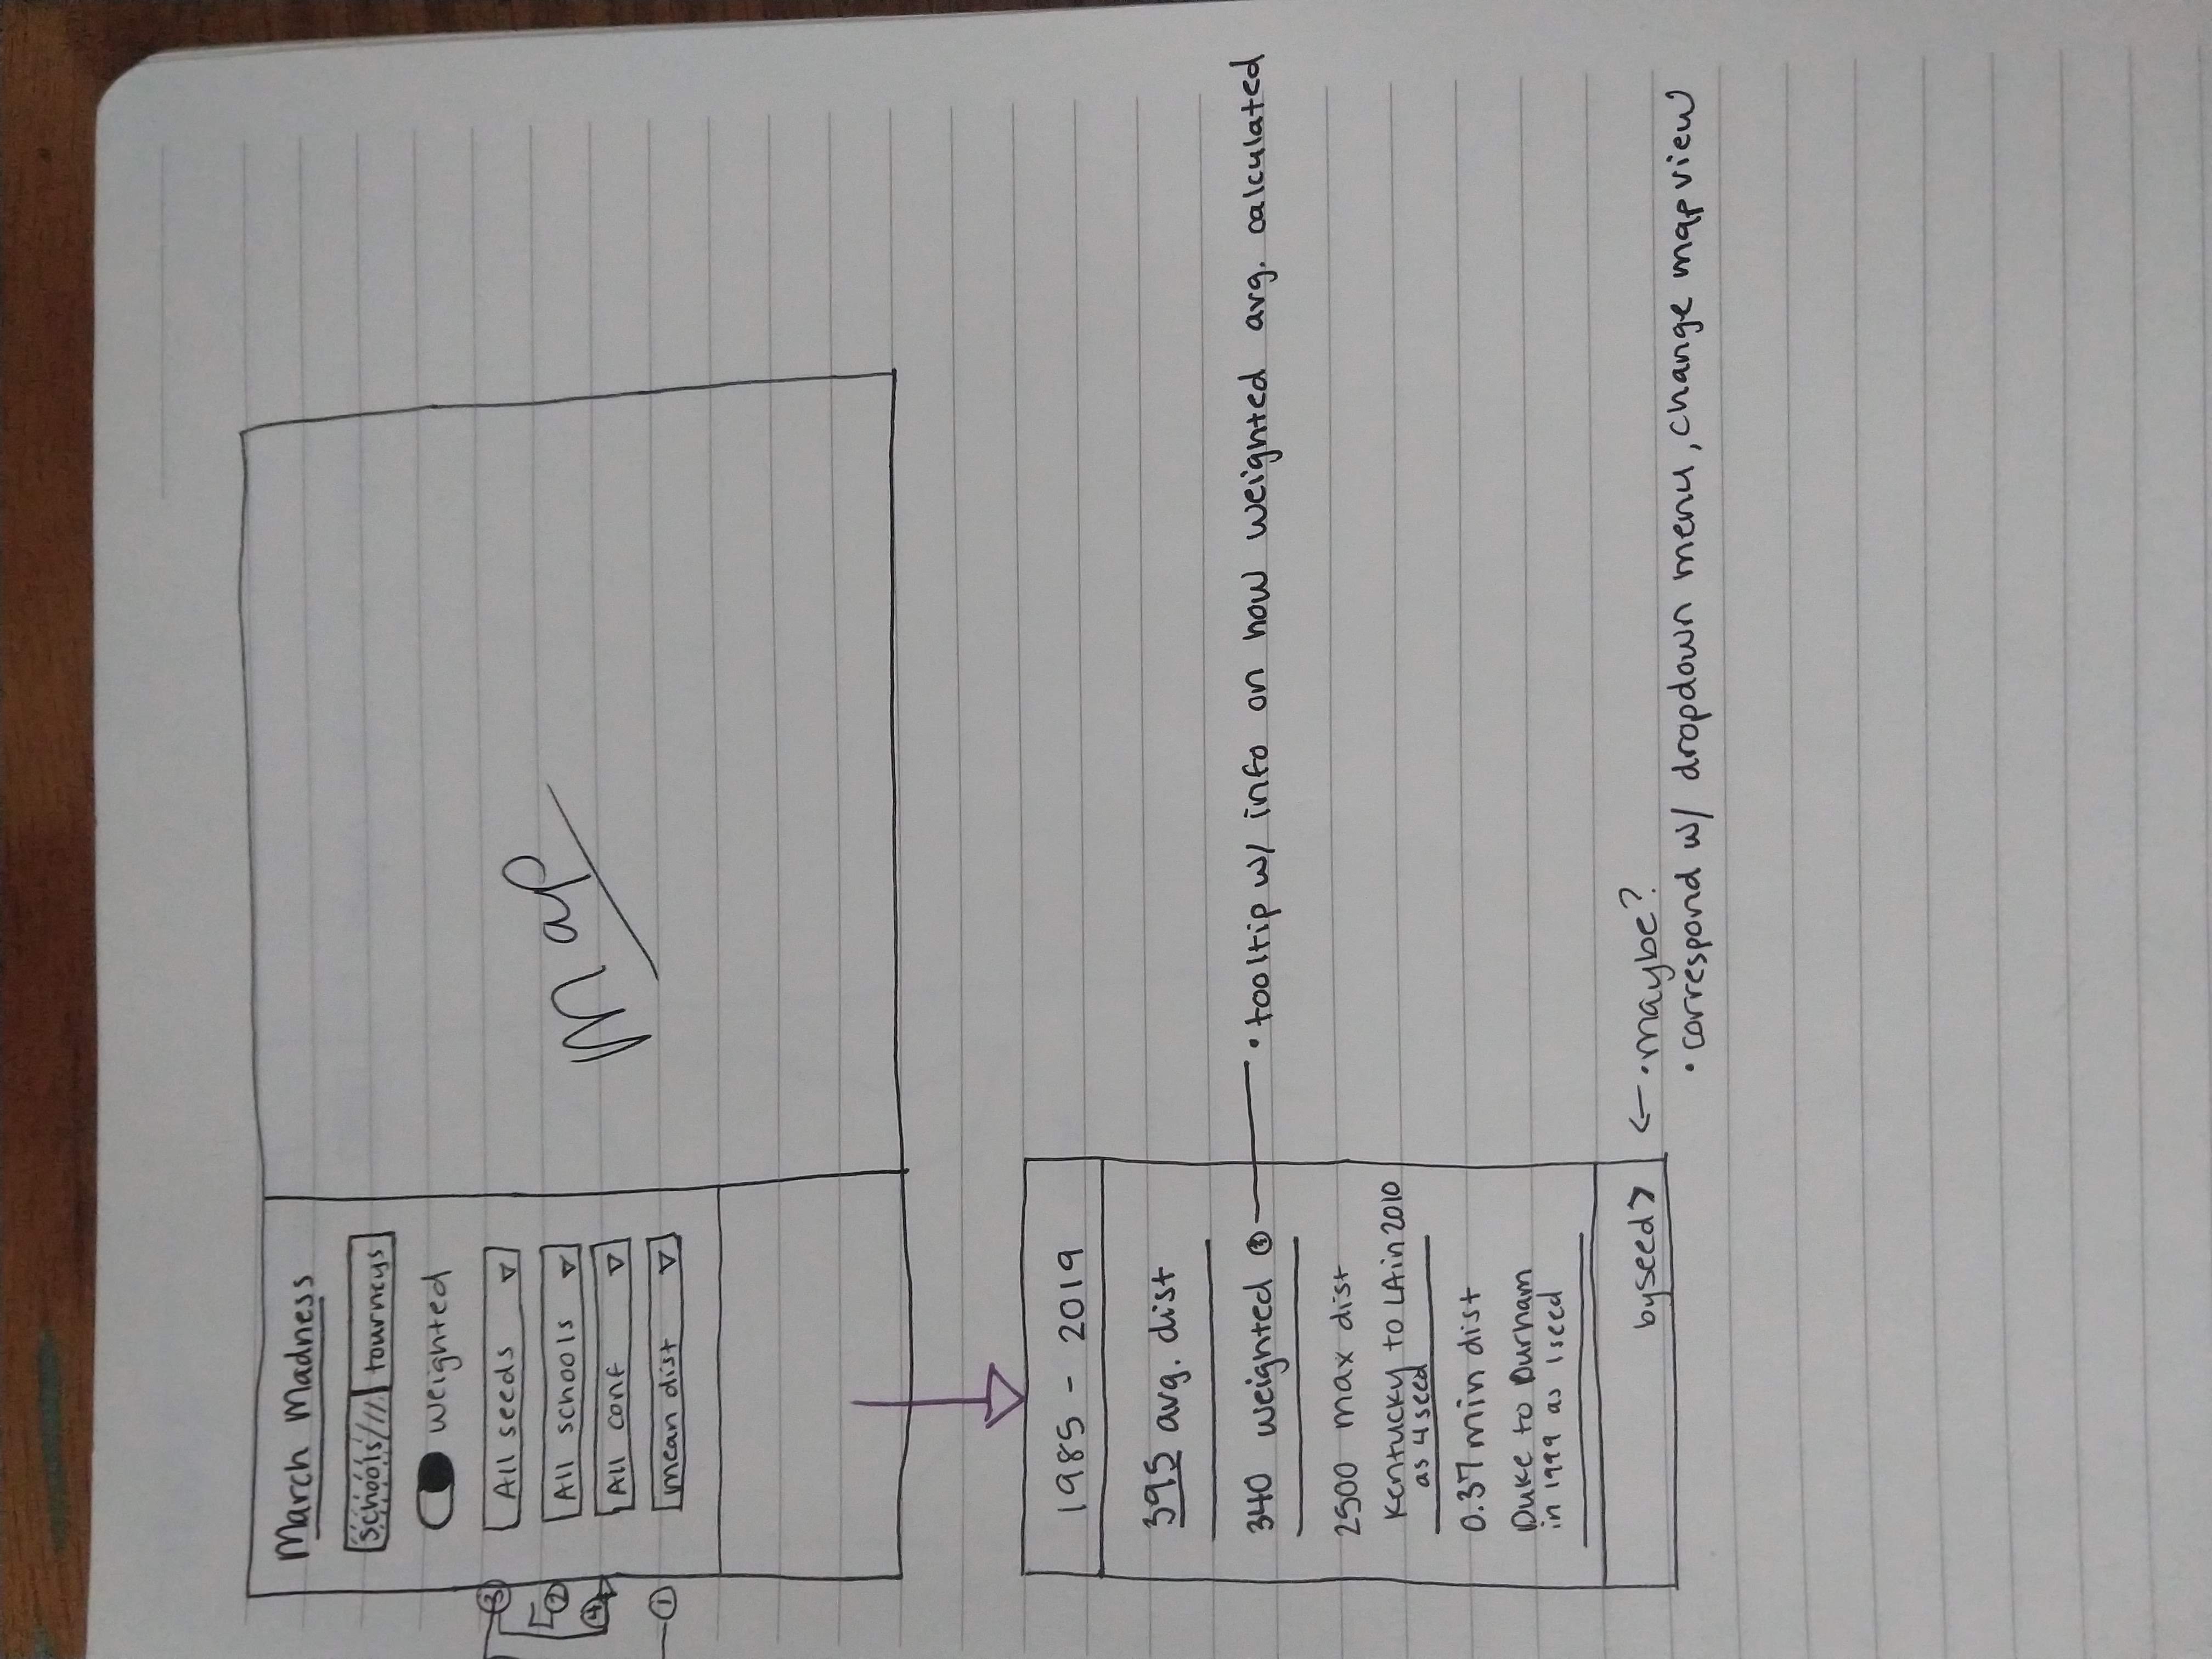 March Madness
schools tourneys
weighted
③ All seeds
② All schools
④ All conf
① mean dist
Map
1985 - 2019
395 avg. dist
340 weighted • tooltip w/ info on how weighted avg. calculated
2500 max dist
Kentucky to LA in 2010
as 4 seed
0.37 min dist
Duke to Durham
in 1999 as 1 seed
by seed > ← • maybe?
• correspond w/ dropdown menu, change map view